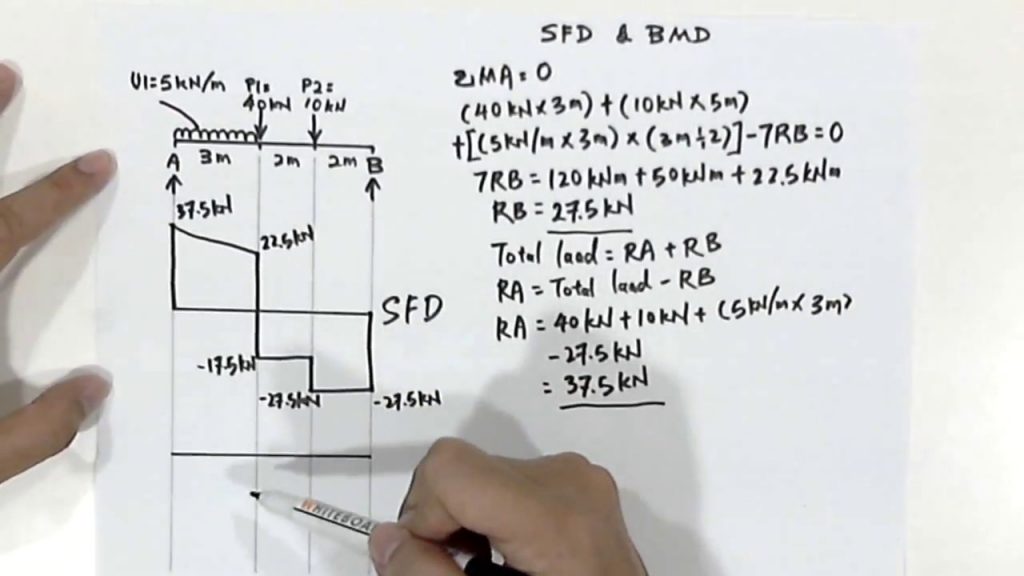 SFD & BMD
U1=5kN/m P1= 40kN P2= 10kN
3m 2m 2m
A B
37.5kN
22.5kN
SFD
-17.5kN
-27.5kN -27.5kN
ΣMA=0
(40kN×3m)+(10kN×5m)
+[(5kN/m×3m)×(3m÷2)]-7RB=0
7RB=120kNm+50kNm+22.5kNm
RB=27.5kN
Total load=RA+RB
RA=Total load-RB
RA=40kN+10kN+(5kN/m×3m)
-27.5kN
=37.5kN
WHITEBOA